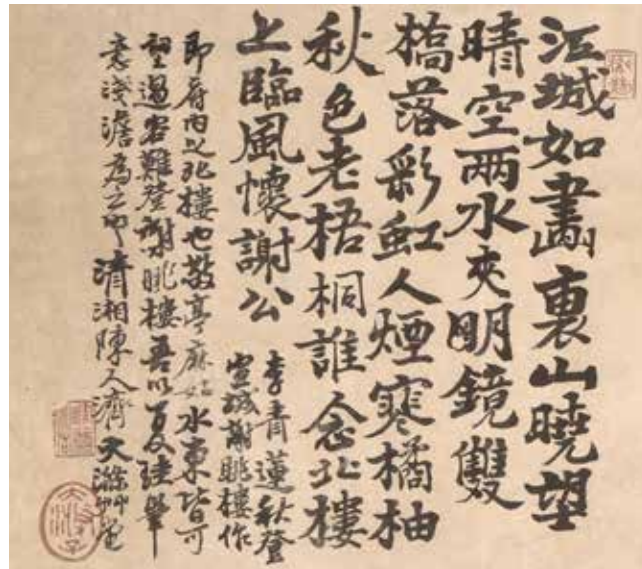 江城如畫裏山曉望
晴空两水夾明鏡雙
橋落彩虹人煙寒橘柚
秋色老梧桐誰念北樓
上臨風懷謝公
李青蓮秋登
宣城謝眺樓作
即府内之北樓也敬亭麻姑水東皆可
望過客難登謝眺樓吾以筆
意淺澹為之清湘陳人濟大滌堂